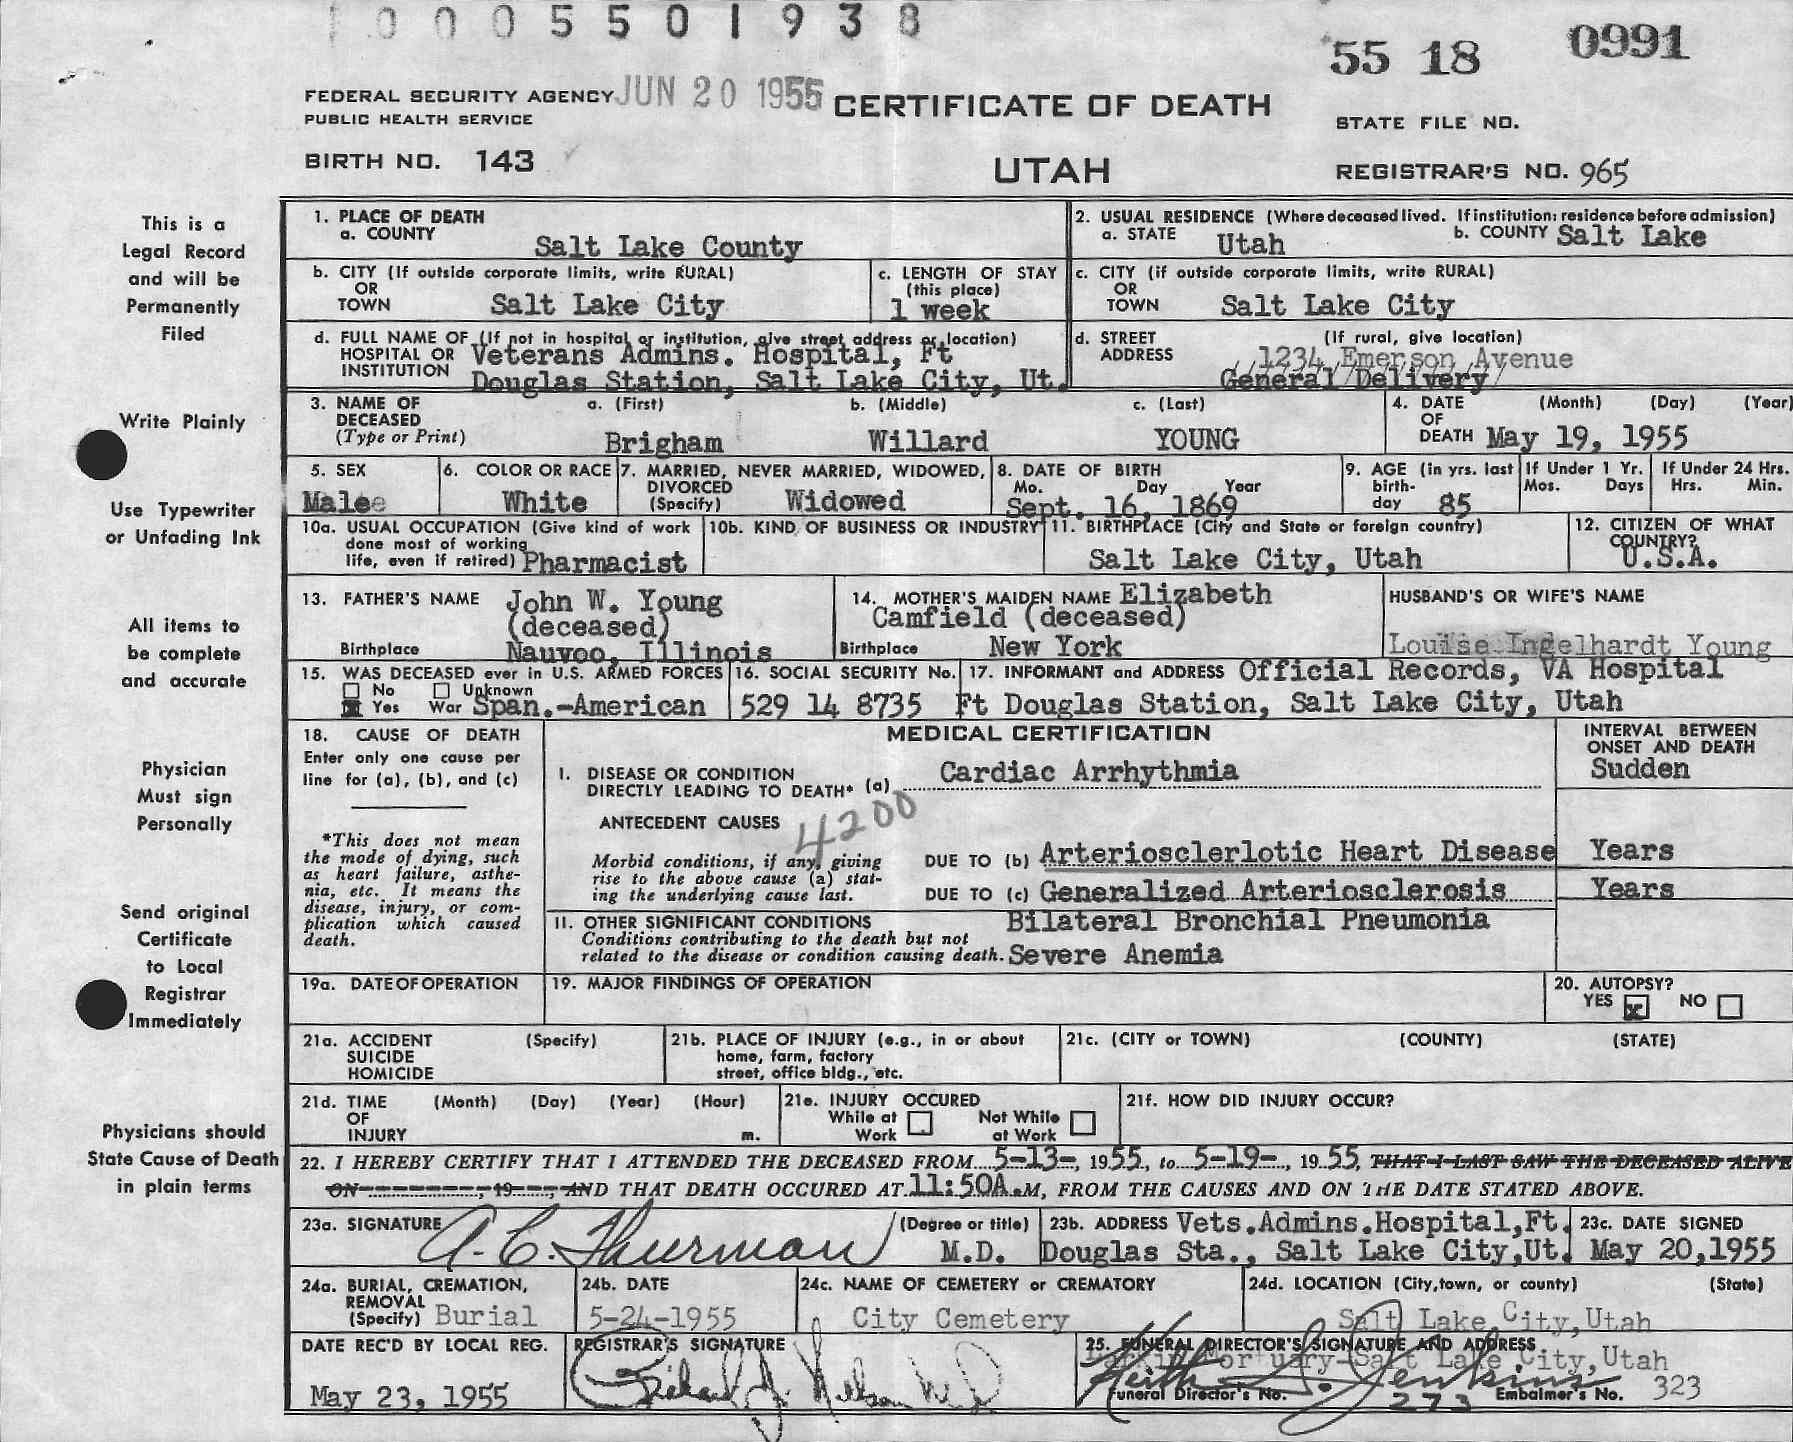 1000 5501938
55 18 0991
FEDERAL SECURITY AGENCY JUN 20 1955 CERTIFICATE OF DEATH
PUBLIC HEALTH SERVICE
STATE FILE NO.
BIRTH NO. 143
UTAH
REGISTRAR'S NO. 965
This is a
Legal Record
and will be
Permanently
Filed
Write Plainly
Use Typewriter
or Unfading Ink
All items to
be complete
and accurate
Physician
Must sign
Personally
Send original
Certificate
to Local
Registrar
Immediately
Physicians should
State Cause of Death
in plain terms
1. PLACE OF DEATH
a. COUNTY Salt Lake County
2. USUAL RESIDENCE (Where deceased lived. If institution: residence before admission)
a. STATE Utah b. COUNTY Salt Lake
b. CITY (If outside corporate limits, write RURAL)
OR
TOWN Salt Lake City
c. LENGTH OF STAY
(this place)
1 week
c. CITY (if outside corporate limits, write RURAL)
OR
TOWN Salt Lake City
d. FULL NAME OF (If not in hospital or institution, give street address or location)
HOSPITAL OR Veterans Admins. Hospital, Ft
INSTITUTION Douglas Station, Salt Lake City, Ut.
d. STREET (If rural, give location)
ADDRESS 1234 Emerson Avenue
General Delivery
3. NAME OF a. (First) b. (Middle) c. (Last)
DECEASED
(Type or Print) Brigham Willard YOUNG
4. DATE (Month) (Day) (Year)
OF
DEATH May 19, 1955
5. SEX
Male
6. COLOR OR RACE
White
7. MARRIED, NEVER MARRIED, WIDOWED,
DIVORCED
(Specify) Widowed
8. DATE OF BIRTH
Mo. Day Year
Sept. 16, 1869
9. AGE (in yrs. last
birth-
day 85
If Under 1 Yr.
Mos. Days
If Under 24 Hrs.
Hrs. Min.
10a. USUAL OCCUPATION (Give kind of work
done most of working
life, even if retired) Pharmacist
10b. KIND OF BUSINESS OR INDUSTRY
11. BIRTHPLACE (City and State or foreign country)
Salt Lake City, Utah
12. CITIZEN OF WHAT
COUNTRY?
U.S.A.
13. FATHER'S NAME John W. Young
(deceased)
Birthplace Nauvoo, Illinois
14. MOTHER'S MAIDEN NAME Elizabeth
Camfield (deceased)
Birthplace New York
HUSBAND'S OR WIFE'S NAME
Louise Ingelhardt Young
15. WAS DECEASED ever in U.S. ARMED FORCES
No Unknown
Yes War Span.-American
16. SOCIAL SECURITY No.
529 14 8735
17. INFORMANT and ADDRESS Official Records, VA Hospital
Ft Douglas Station, Salt Lake City, Utah
18. CAUSE OF DEATH
Enter only one cause per
line for (a), (b), and (c)
*This does not mean
the mode of dying, such
as heart failure, asthe-
nia, etc. It means the
disease, injury, or com-
plication which caused
death.
MEDICAL CERTIFICATION
INTERVAL BETWEEN
ONSET AND DEATH
I. DISEASE OR CONDITION
DIRECTLY LEADING TO DEATH* (a) Cardiac Arrhythmia Sudden
ANTECEDENT CAUSES 4200
Morbid conditions, if any, giving
rise to the above cause (a) stat-
ing the underlying cause last.
DUE TO (b) Arteriosclerlotic Heart Disease Years
DUE TO (c) Generalized Arteriosclerosis Years
II. OTHER SIGNIFICANT CONDITIONS Bilateral Bronchial Pneumonia
Conditions contributing to the death but not
related to the disease or condition causing death. Severe Anemia
19a. DATE OF OPERATION
19. MAJOR FINDINGS OF OPERATION
20. AUTOPSY?
YES x NO
21a. ACCIDENT (Specify)
SUICIDE
HOMICIDE
21b. PLACE OF INJURY (e.g., in or about
home, farm, factory
street, office bldg., etc.
21c. (CITY or TOWN) (COUNTY) (STATE)
21d. TIME (Month) (Day) (Year) (Hour)
OF
INJURY m.
21e. INJURY OCCURED
While at Not While
Work at Work
21f. HOW DID INJURY OCCUR?
22. I HEREBY CERTIFY THAT I ATTENDED THE DECEASED FROM 5-13-, 1955, to 5-19-, 1955, THAT I LAST SAW THE DECEASED ALIVE
ON , 19 , AND THAT DEATH OCCURED AT 11:50A.M, FROM THE CAUSES AND ON THE DATE STATED ABOVE.
23a. SIGNATURE A. C. Thurman
(Degree or title)
M.D.
23b. ADDRESS Vets.Admins.Hospital,Ft.
Douglas Sta., Salt Lake City,Ut.
23c. DATE SIGNED
May 20,1955
24a. BURIAL, CREMATION,
REMOVAL
(Specify) Burial
24b. DATE
5-24-1955
24c. NAME OF CEMETERY or CREMATORY
City Cemetery
24d. LOCATION (City,town, or county) (State)
Salt Lake City,Utah
DATE REC'D BY LOCAL REG.
May 23, 1955
REGISTRAR'S SIGNATURE
25. FUNERAL DIRECTOR'S SIGNATURE AND ADDRESS
Mortuary-Salt Lake City,Utah
Keith J. Jenkins
Funeral Director's No. 273 Embalmer's No. 323